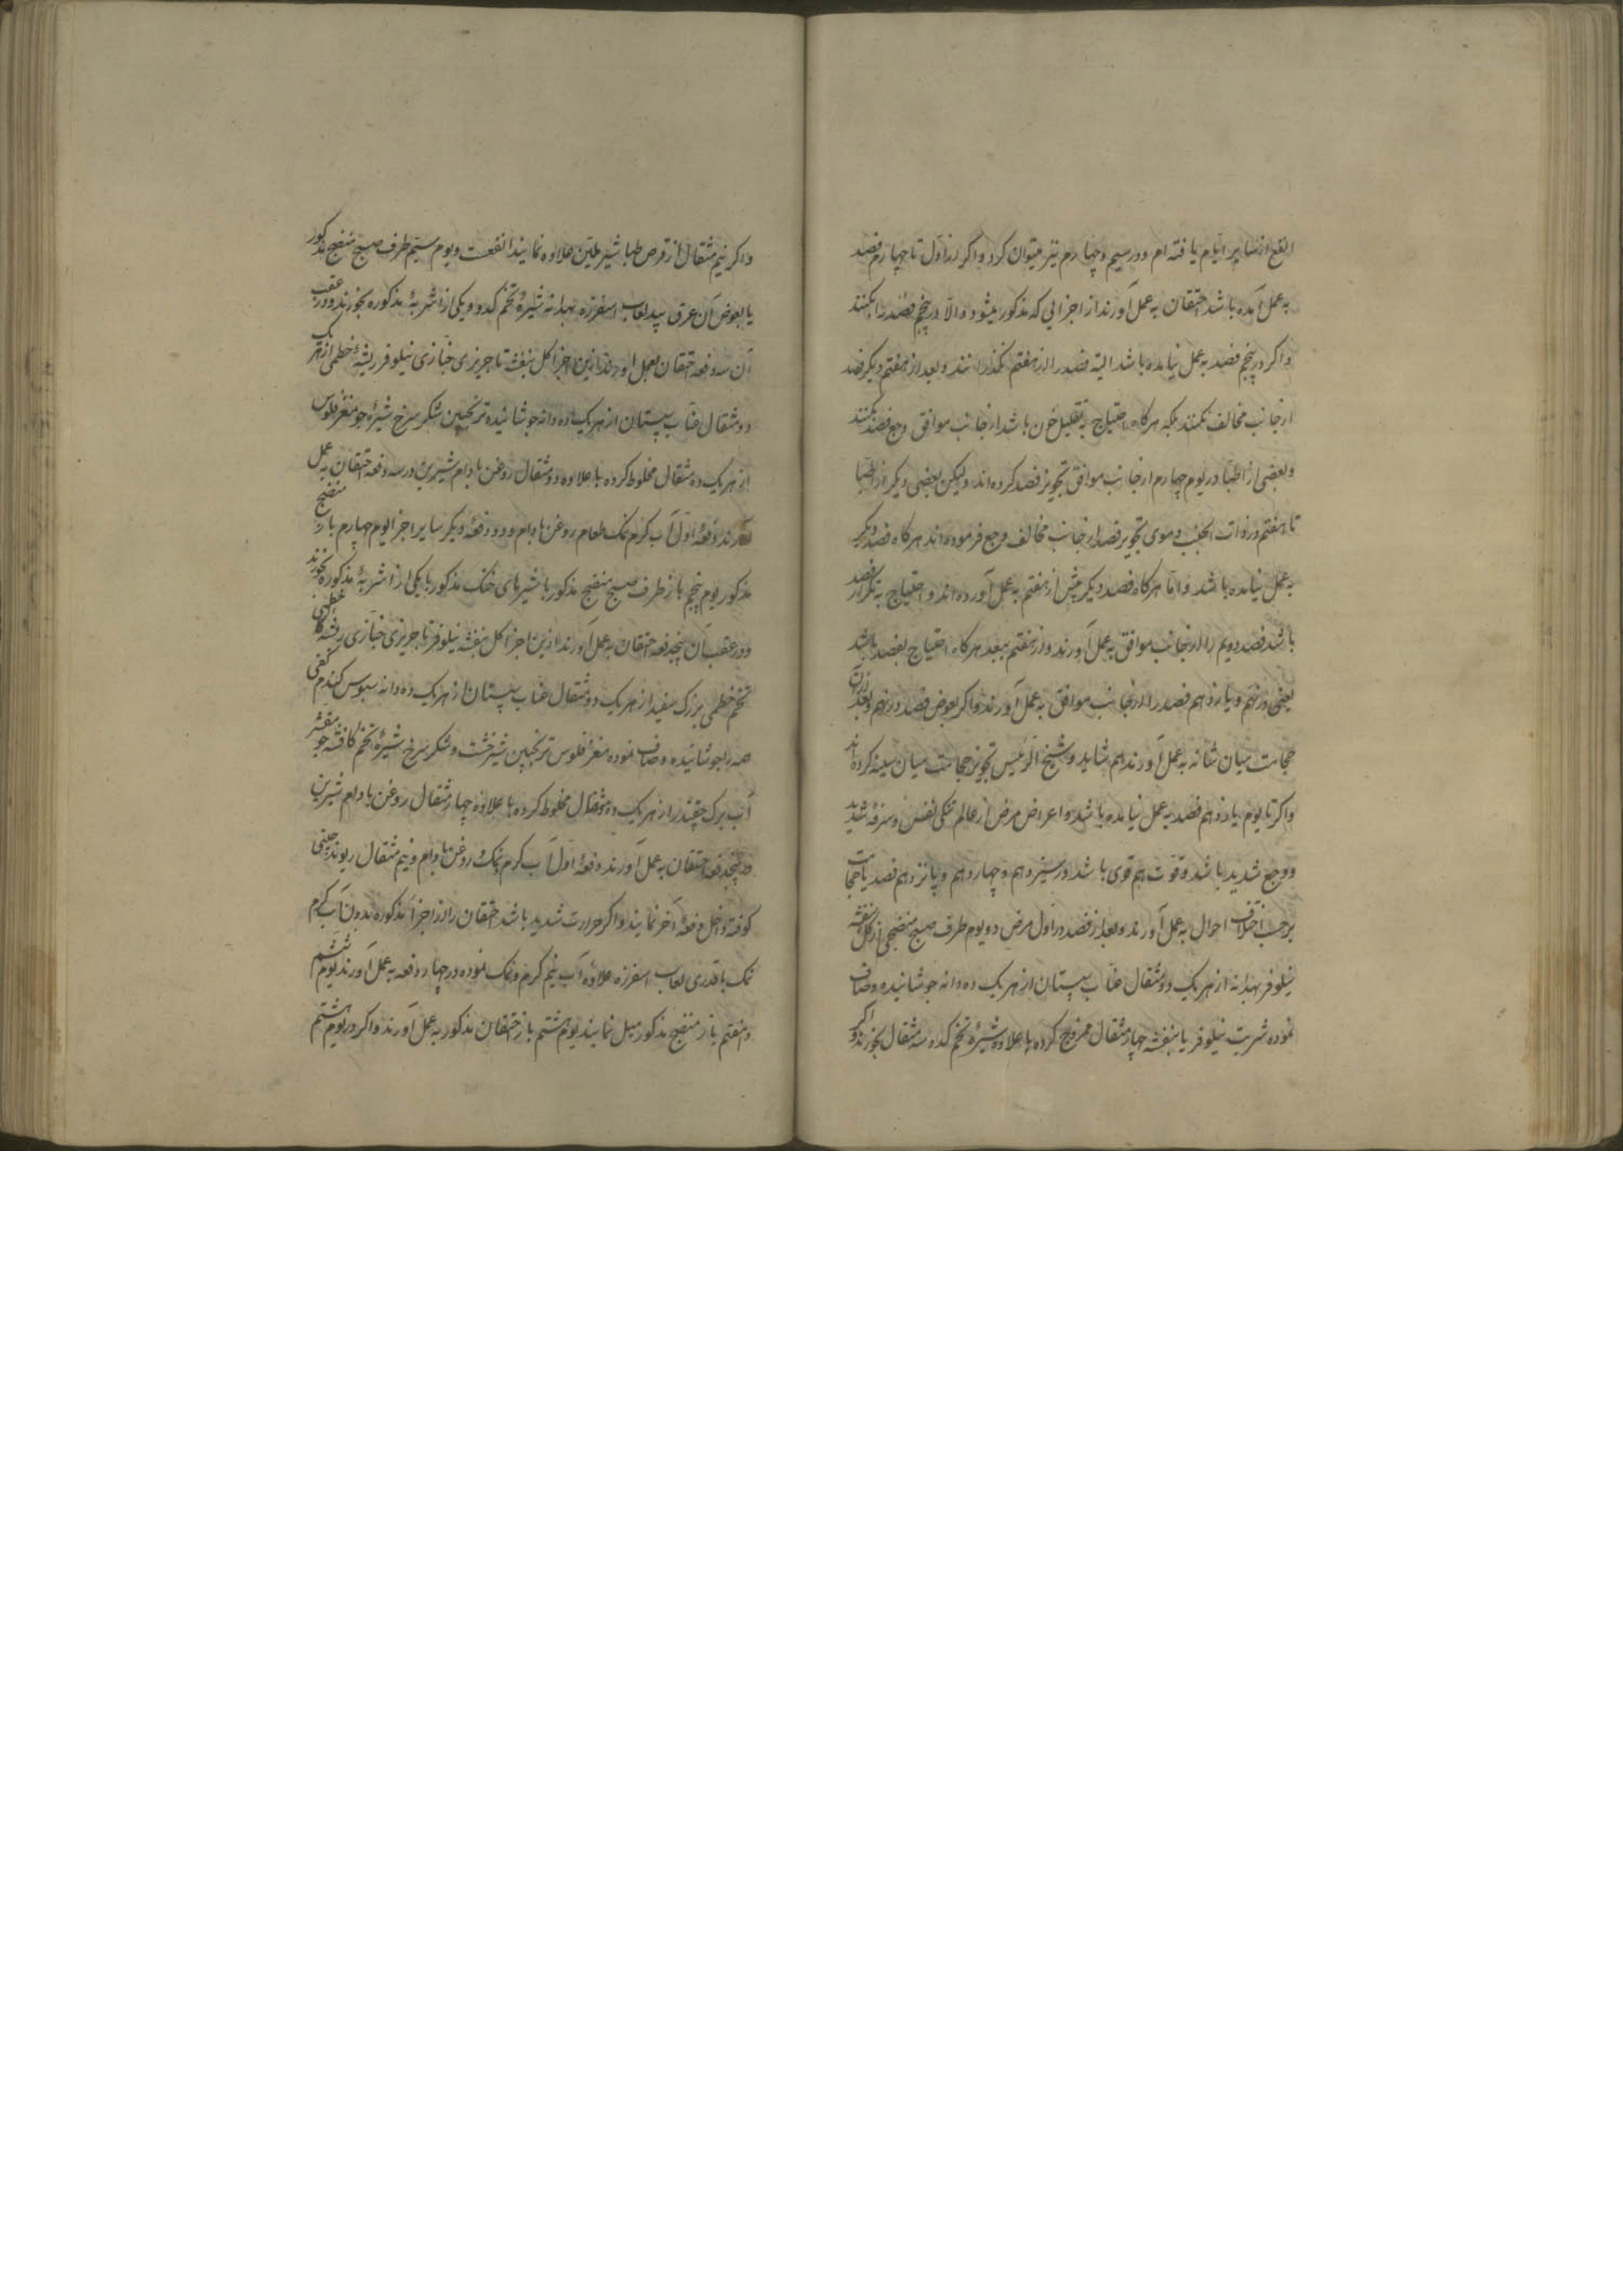 انفع از سایر ایام یافته‌ام و در سیم و چهارم نیز میتوان کرد و اگر در اول تا چهارم فصد
به عمل آمده باشد احتقان به عمل آورند از اجزایی که مذکور میشود و الّا در پنجم فصد را بکنند
و اگر در پنجم فصد به عمل نیامده باشد البته فصد را از هفتم نگذرانند و بعد از هفتم دیگر فصد
از جانب مخالف نکنند بلکه هرگاه احتیاج به تقلیل خون باشد از جانب موافق وجع فصد کنند
و بعضی از اطبّا در یوم چهارم از جانب موافق تجویز فصد کرده‌اند ولیکن بعضی دیگر از اطبّا
تا هفتم در ذات الجنب دموی تجویز فصد از جانب مخالف وجع فرموده‌اند هرگاه فصد دیگر
به عمل نیامده باشد و امّا هرگاه فصد دیگر پیش از هفتم به عمل آورده‌اند و احتیاج به تکرار فصد
باشد فصد دویم را از جانب موافق به عمل آورند و از هفتم ببعد هرگاه احتیاج بفصد باشد
یعنی در نهم و یازدهم فصد را از جانب موافق به عمل آورند و اگر بعوض فصد در نهم و بعد از آن
حجامت میان شانه به عمل آورند هم شاید و شیخ الرئیس تجویز حجامت میان سینه کرده‌اند
و اگر تا یوم یازدهم فصد به عمل نیامده باشد و اعراض مرض از عالم تنگی نفس و سرفهٔ شدید
و وجع شدید باشد و قوّت هم قوی باشد در سیزدهم و چهاردهم و پانزدهم فصد یا حجامت
برحسب اختلاف احوال به عمل آورند و بعد از فصد در اول مرض دویوم طرف صبح منضجی از گل بنفشه
نیلوفر بهدانه از هر یک دو مثقال عنّاب سپستان از هر یک ده دانه جوشانیده و صاف
نموده شربت نیلوفر یا بنفشه چهار مثقال ممزوج کرده با علاوه شیرهٔ تخم کدو سه مثقال بخورند و اگر
و اگر نیم مثقال از قرص طباشیر ملیّن علاوه نمایند انفعست و یوم سیّم طرف صبح منضج مذکور
یا بعوض آن عرق بید لعاب اسفرزه بهدانه شیرهٔ تخم کدو و یکی از اشربهٔ مذکوره بخورند و در عقب
آن سه دفعه احتقان بعمل آورند ازین اجزا گل بنفشه تاجریزی خبّازی نیلوفر ریشهٔ خطمی از هر یک
دو مثقال عنّاب سپستان از هر یک ده دانه جوشانیده ترنجبین شکر سرخ شیرهٔ جو مغز فلوس
از هر یک ده مثقال مخلوط کرده با علاوه دو مثقال روغن بادام شیرین در سه دفعه احتقان به عمل
آورند دفعهٔ اول آب گرم نمک طعام روغن بادام و دو دفعهٔ دیگر سایر اجزا یوم چهارم باز منضج
مذکور یوم پنجم باز طرف صبح منضج مذکور با شیرهای خنک مذکور با یکی از اشربهٔ مذکوره بخورند
و در عقب آن پنجدفعه احتقان به عمل آورند ازین اجزا گل بنفشه نیلوفر تاجریزی خبّازی ریشهٔ خطمی
تخم خطمی بزرک سفید از هر یک دو مثقال عنّاب سپستان از هر یک ده دانه سبوس گندم کفی
همه را جوشانیده و صاف نموده مغز فلوس ترنجبین شیرخشت و شکر سرخ شیرهٔ تخم کافشه جو مقشر
آب برگ چقندر از هر یک ده مثقال مخلوط کرده با علاوهٔ چهار مثقال روغن بادام شیرین
در پنجدفعه احتقان به عمل آورند دفعهٔ اول آب گرم و نمک و روغن بادام و نیم مثقال ریوند چینی
کوفته داخل دفعهٔ آخر نمایند و اگر حرارت شدید باشد احتقان را از اجزا مذکوره بدون آب گرم
نمک با قدری لعاب اسفرزه علاوه آب نیم گرم و نمک نموده در چهار دفعه به عمل آورند یوم ششم
و هفتم باز منضج مذکور میل نمایند یوم هشتم باز احتقان مذکور به عمل آورند و اگر در یوم هشتم